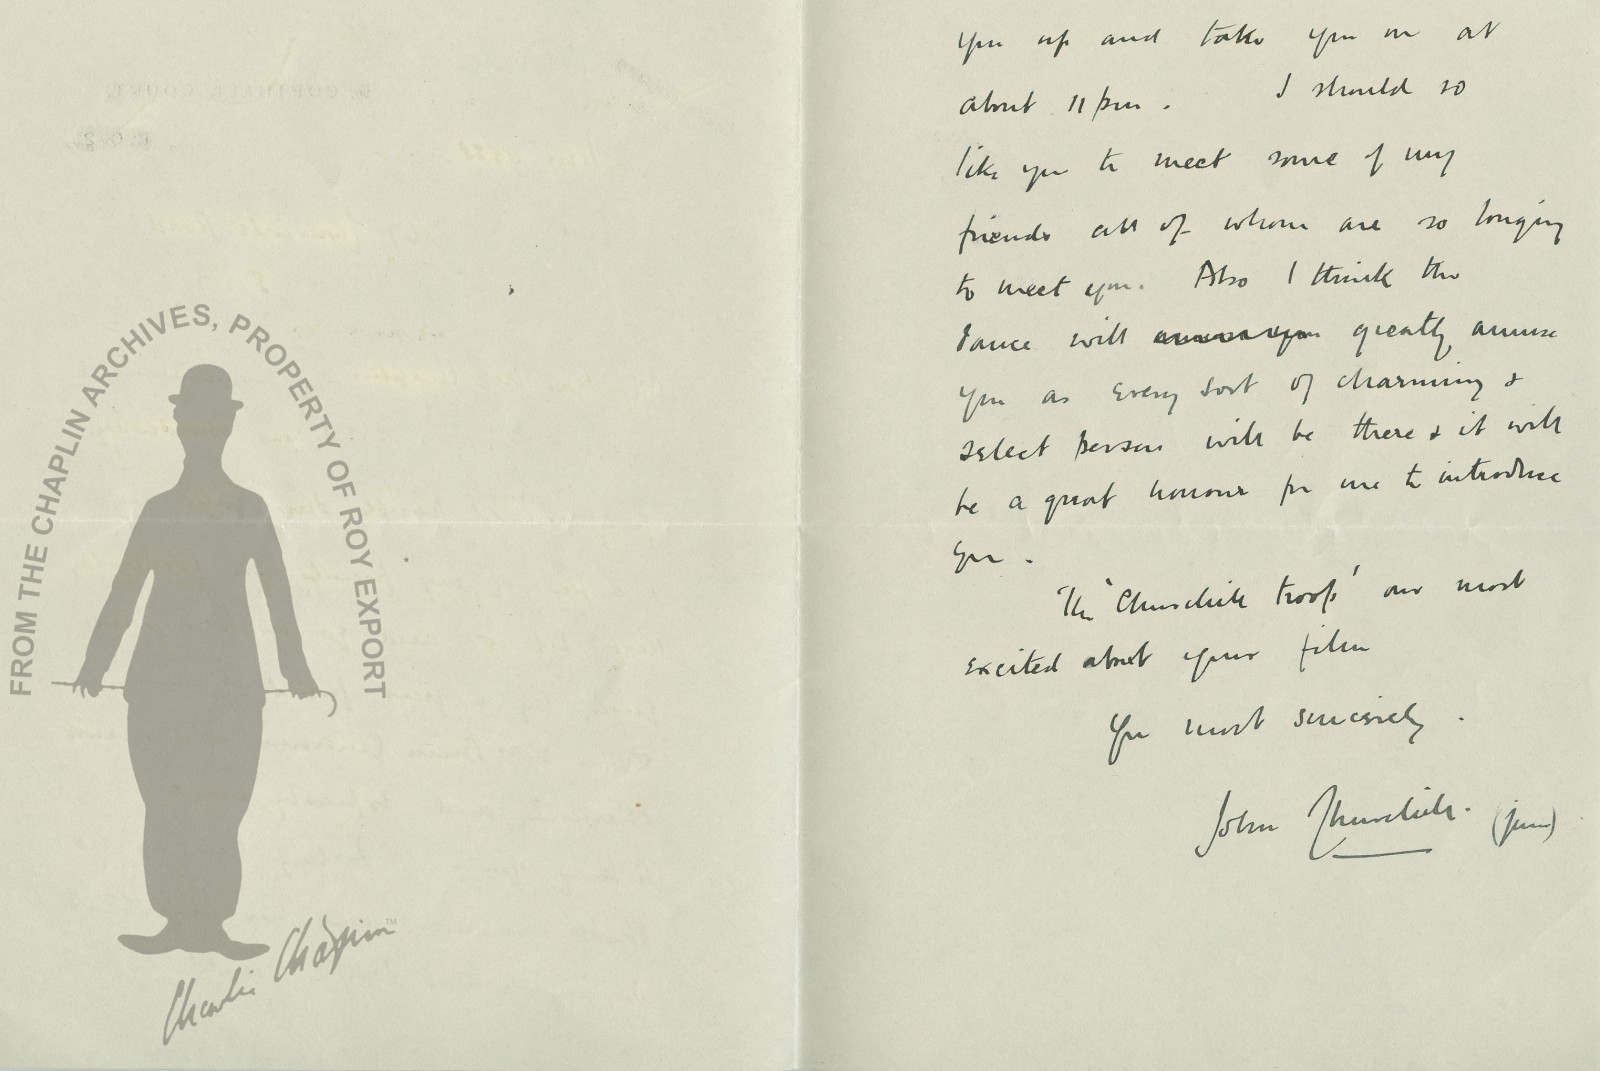 FROM THE CHAPLIN ARCHIVES, PROPERTY OF ROY EXPORT
Charlie Chaplin™
you up and take you on at
about 11 pm. I should so
like you to meet some of my
friends all of whom are so longing
to meet you. Also I think the
dance will greatly amuse
you as every sort of charming &
select person will be there & it will
be a great honour for me to introduce
you.
The 'Churchill troop' are most
excited about your film
You most sincerely.
John Churchill. (jun)